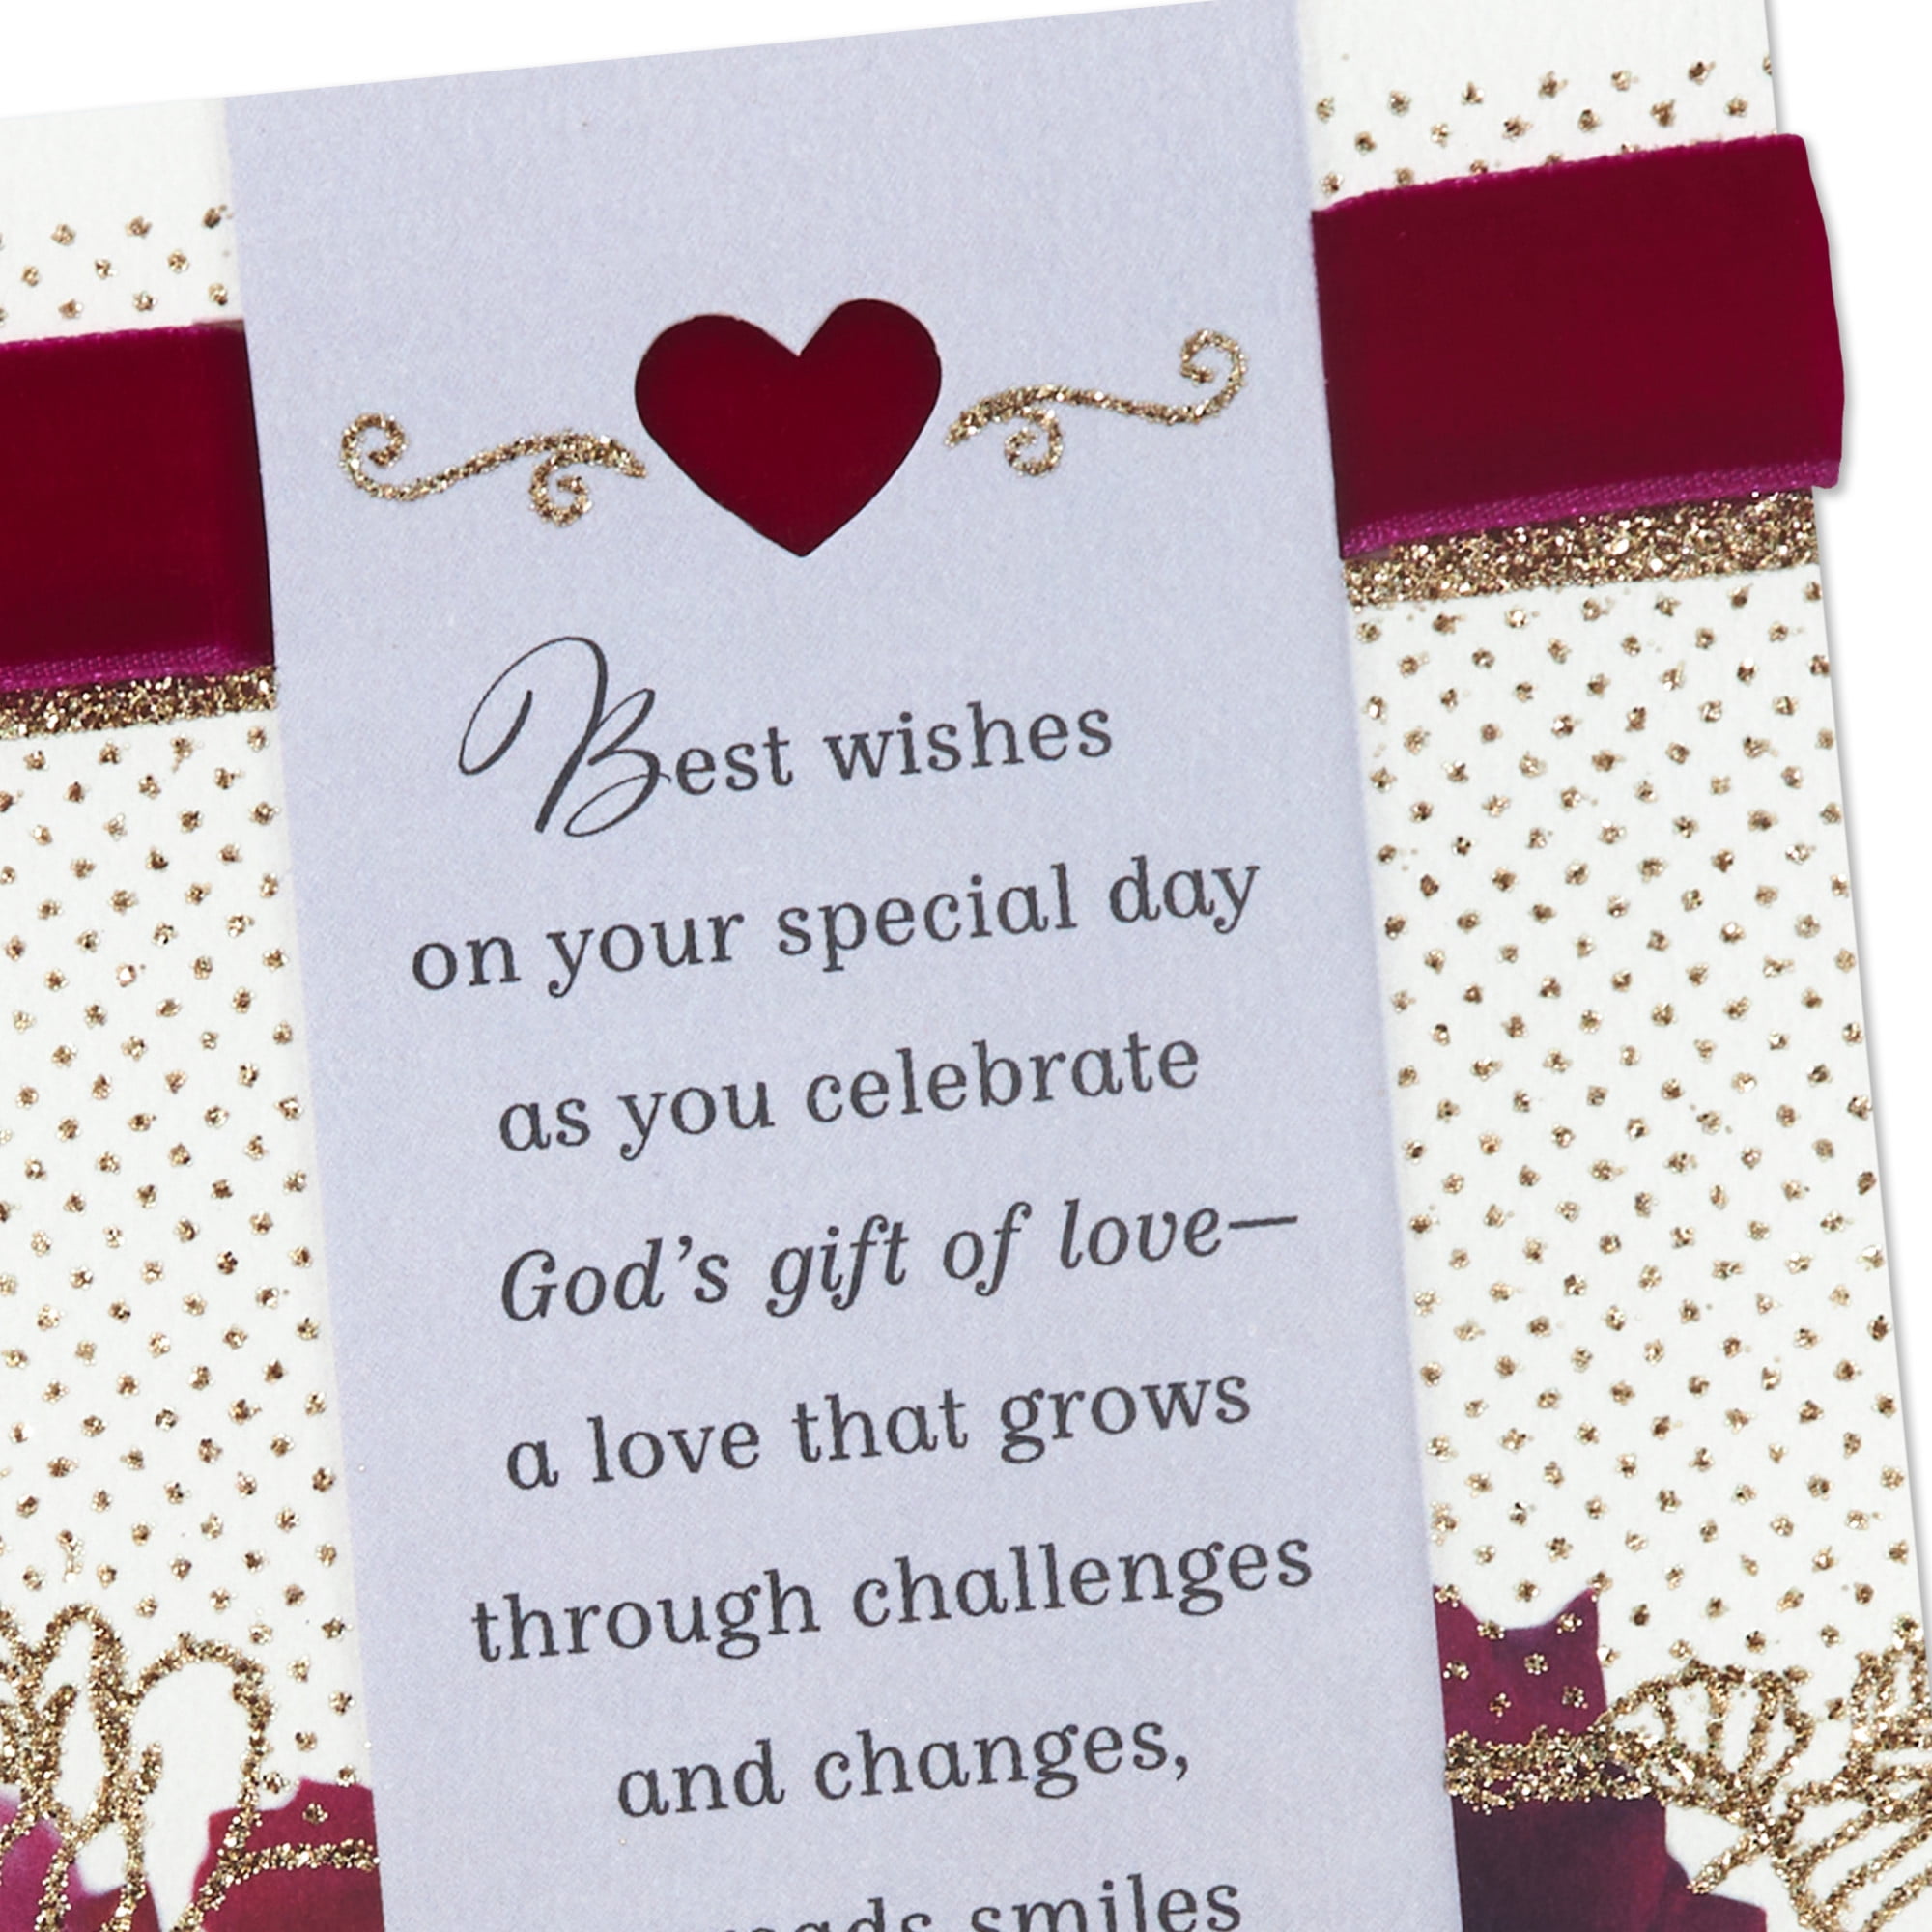 Best wishes
on your special day
as you celebrate
God's gift of love—
a love that grows
through challenges
and changes,
smiles